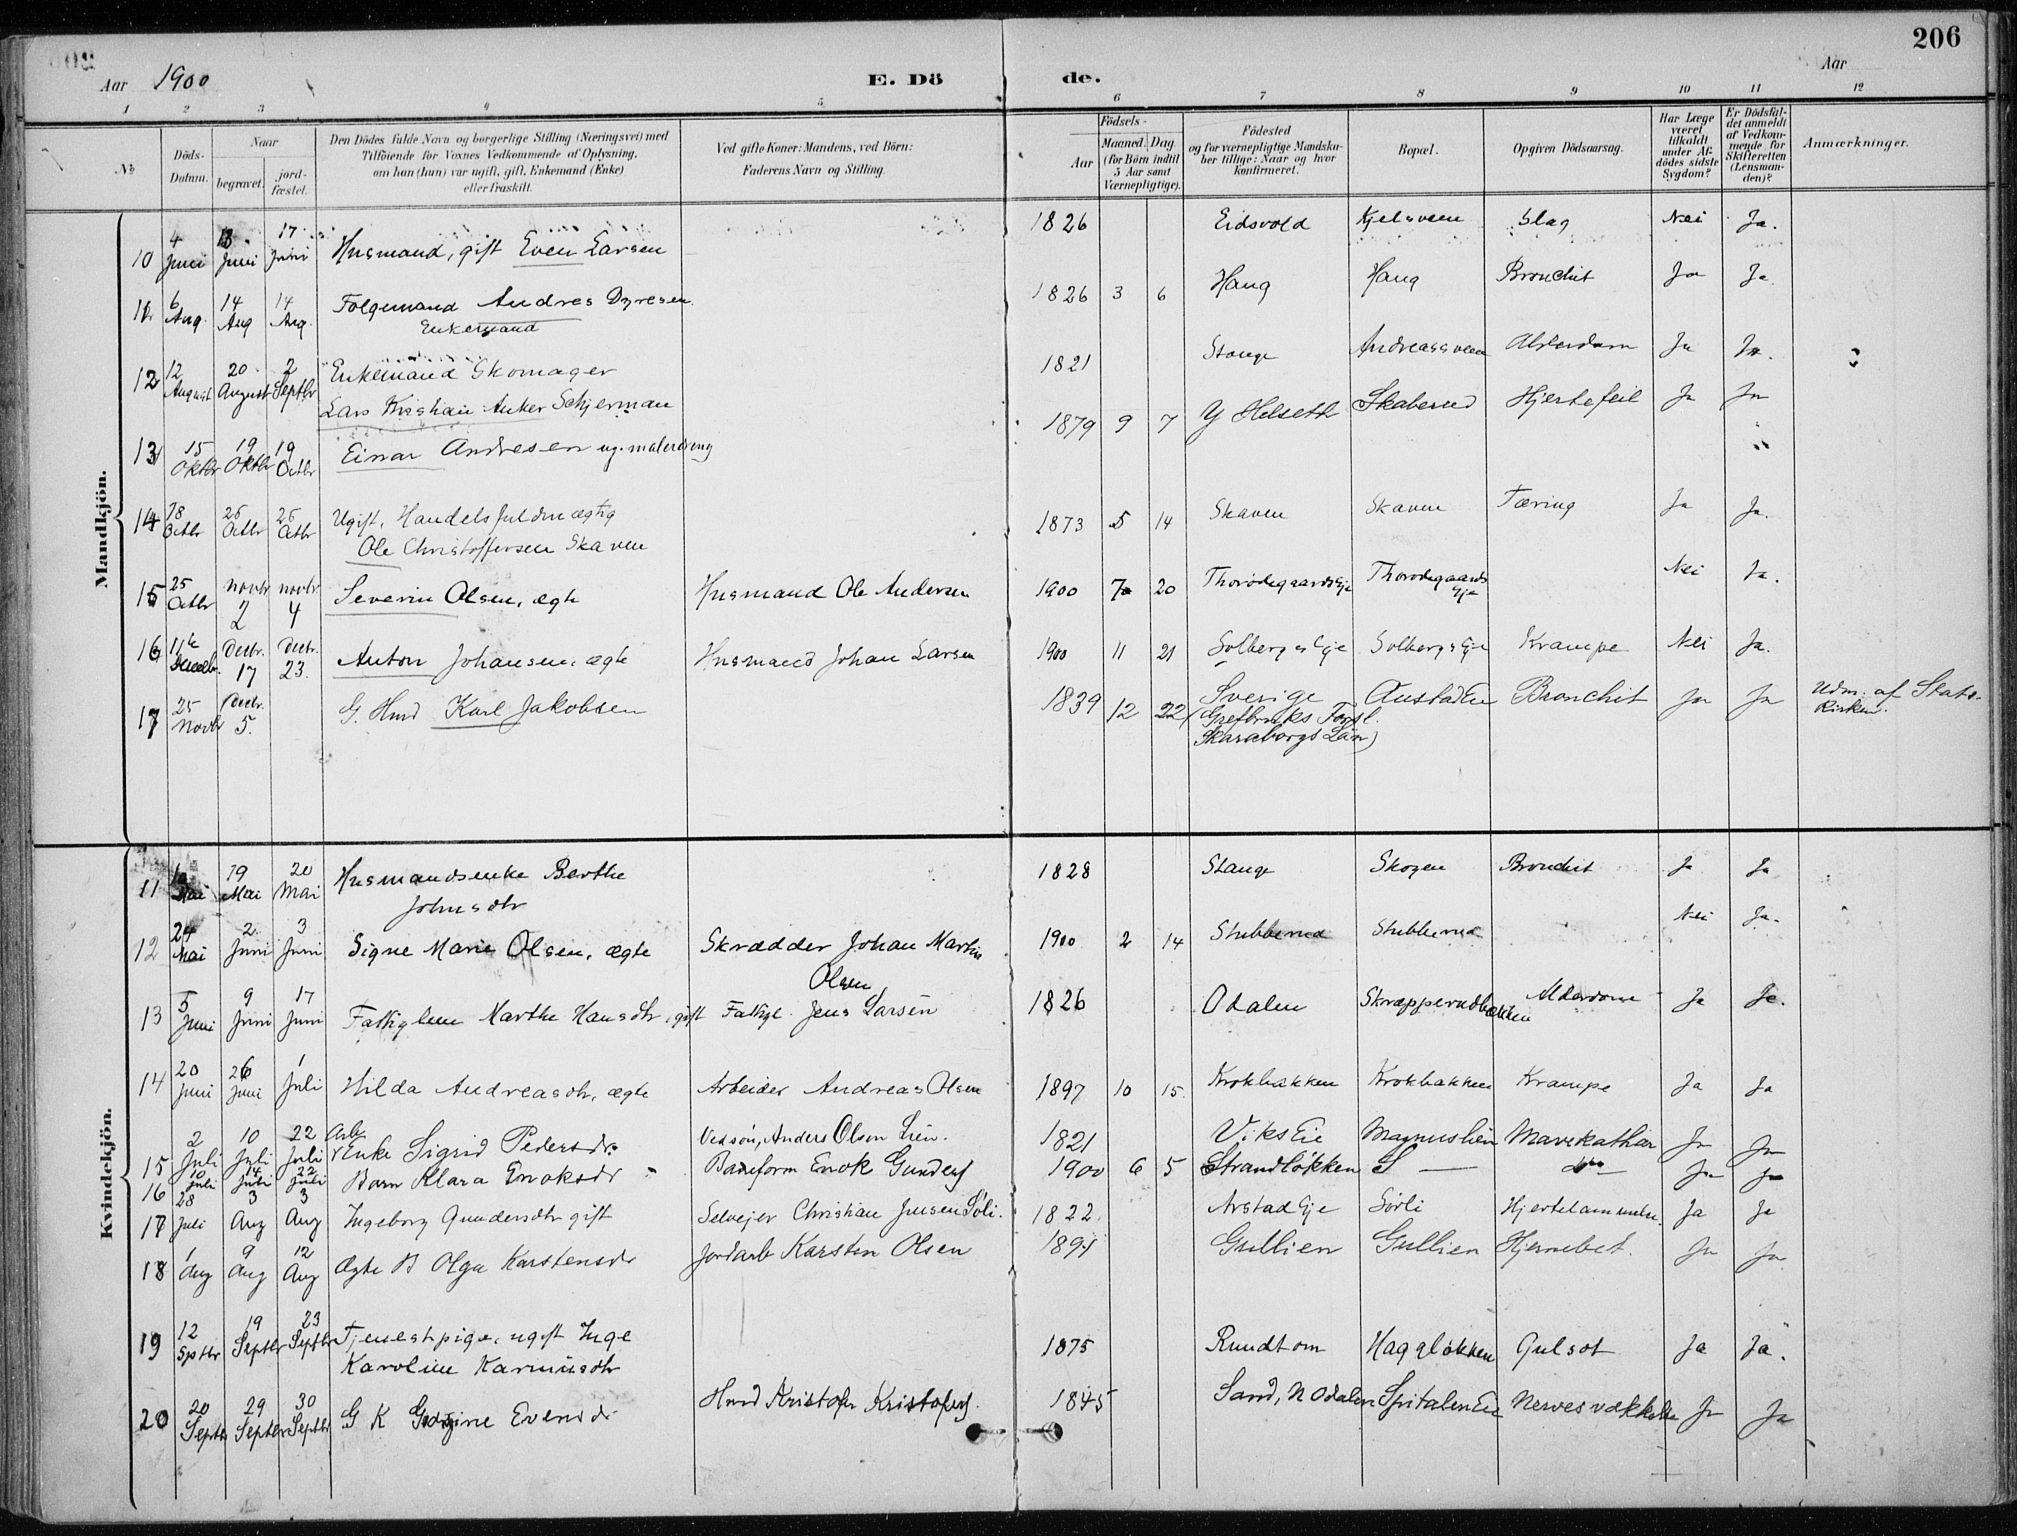 206
Aar 1900 E. Dö de. Aar
1 2 3 4 5 6 7 8 9 10 11 12
No Döds-Datum. Naar begravet. jordfæstet. Den Dödes fulde Navn og borgerlige Stilling (Næringsvei) med Tilföiende for Voxnes Vedkommende af Oplysning, om han (hun) var ugift, gift, Enkemand (Enke) eller fraskilt. Ved gifte Koner: Mandens, ved Börn: Faderens Navn og Stilling. Födsels- Aar Maaned. Dag. (for Börn indtil 5 Aar samt Værnepligtige). Födested og for værnepligtige Mandskaber tillige: Naar og hvor konfirmeret. Bopæl. Opgiven Dödsaarsag. Har Læge været tilkaldt under Afdödes sidste Sygdom? Er Dödsfaldet anmeldt af Vedkommende for Skifteretten (Lensmanden)? Anmærkninger.
Mandkjön.
10 4 Juni 13 Juni 17 Juni Husmand, gift Even Larsen 1826 Eidsvold Kjelsveen Slag Nei Ja.
11 6 Aug. 14 Aug 14 Aug. Folgemand Andres Dyresen 1826 3 6 Haug Haug Bronchit Ja Ja.
Enkemand
12 12 August 20 August 2 Septbr Enkemand Skomager 1821 Stange Andreassveen Alderdom Ja Ja.
Lars Kristian Anker Schjerman
13 15 Oktbr 19 Oktbr 19 Octbr Einar Andresen ug. malerdreng 1879 9 7 Y Helseth Skaberud Hjertefeil Ja Ja
14 18 Octbr 26 Octbr 26 Octbr Ugift, Handelsfuldmægtig 1873 5 14 Skaven Skaven Tæring Ja Ja.
Ole Christoffersen Skaven
15 25 Octbr novbr 2 novbr 4 Severin Olsen, ægte Husmand Ole Andersen 1900 7 20 Thorodegaardseje Thorodegaards Eje Nei Ja.
16 11te Decbr. Decbr. 17 Decbr. 23. Anton Johansen, ægte Husmand Johan Larsen 1900 11 21 Solbergs Eje Solbergs Eje Krampe Nei Ja.
17 25 Novbr Decbr. 5. G. Hmd Karl Jakobsen 1839 12 22 Sverige Austad Eie Bronchit Ja Ja Udm. af Stats-Kirken.
Skaraborgs Län)
Kvindekjön.
11 Mai 19 Mai 20 Mai Husmandsenke Berthe 1828 Stange Skogen Bronchit Ja Ja
Johnsdtr
12 24 Mai 2 Juni 3 Juni Signe Marie Olsen, ægte Skrædder Johan Martin 1900 2 14 Stubberud Stubberud Nei Ja.
Olsen
13 5 Juni 9 Juni 17 Juni Fattiglem Marthe Hansdtr, gift Fattigl. Jens Larsen 1826 Odalen Skrapperudbakken Alderdom Ja Ja.
14 20 Juni 26 Juni 1 Juli Hilda Andreasdtr, ægte Arbeider Andreas Olsen 1897 10 15. Krokbakken Krokbakken Krampe Ja Ja
15 2 Juli 10 Juli 22 Juli Arb Enke Sigrid Pedersdr. Vedsön, Anders Olson Lien. 1821 Viks Eie Magnuslien Mavekathar Ja Ja
16 10 Juli 14 Juli 22 Juli Barn Klara Enoksdr Banform Enok Gunders 1900 6 5 Strandlökken S — do Ja Ja
17 28 Juli 3 Aug 3 Aug Ingeborg Gundersdtr gift Selvejer Christian Jensen Söli. 1822 Arstad Eje Sörli Hjertelammelse. Ja Ja
18 1 Aug 9 Aug 12 Aug Ægte B Olga Karstensdr Jordarb Karsten Olsen 1891 Gullien Gullien Hjernebet. Ja Ja
19 12 Sptbr 19 Septbr 23 Septbr Tjenestpige, ugift Inge 1875 Rundtom Haggløkken Gulsot Ja Ja.
Karoline Karinusdtr
20 20 Septbr 29 Septbr 30 Septbr G K Georgine Evensdr Hmd Kristofer Kristofers. 1845 Sand, N Odalen Spitalen Eie Nervesvækkelse Ja Ja